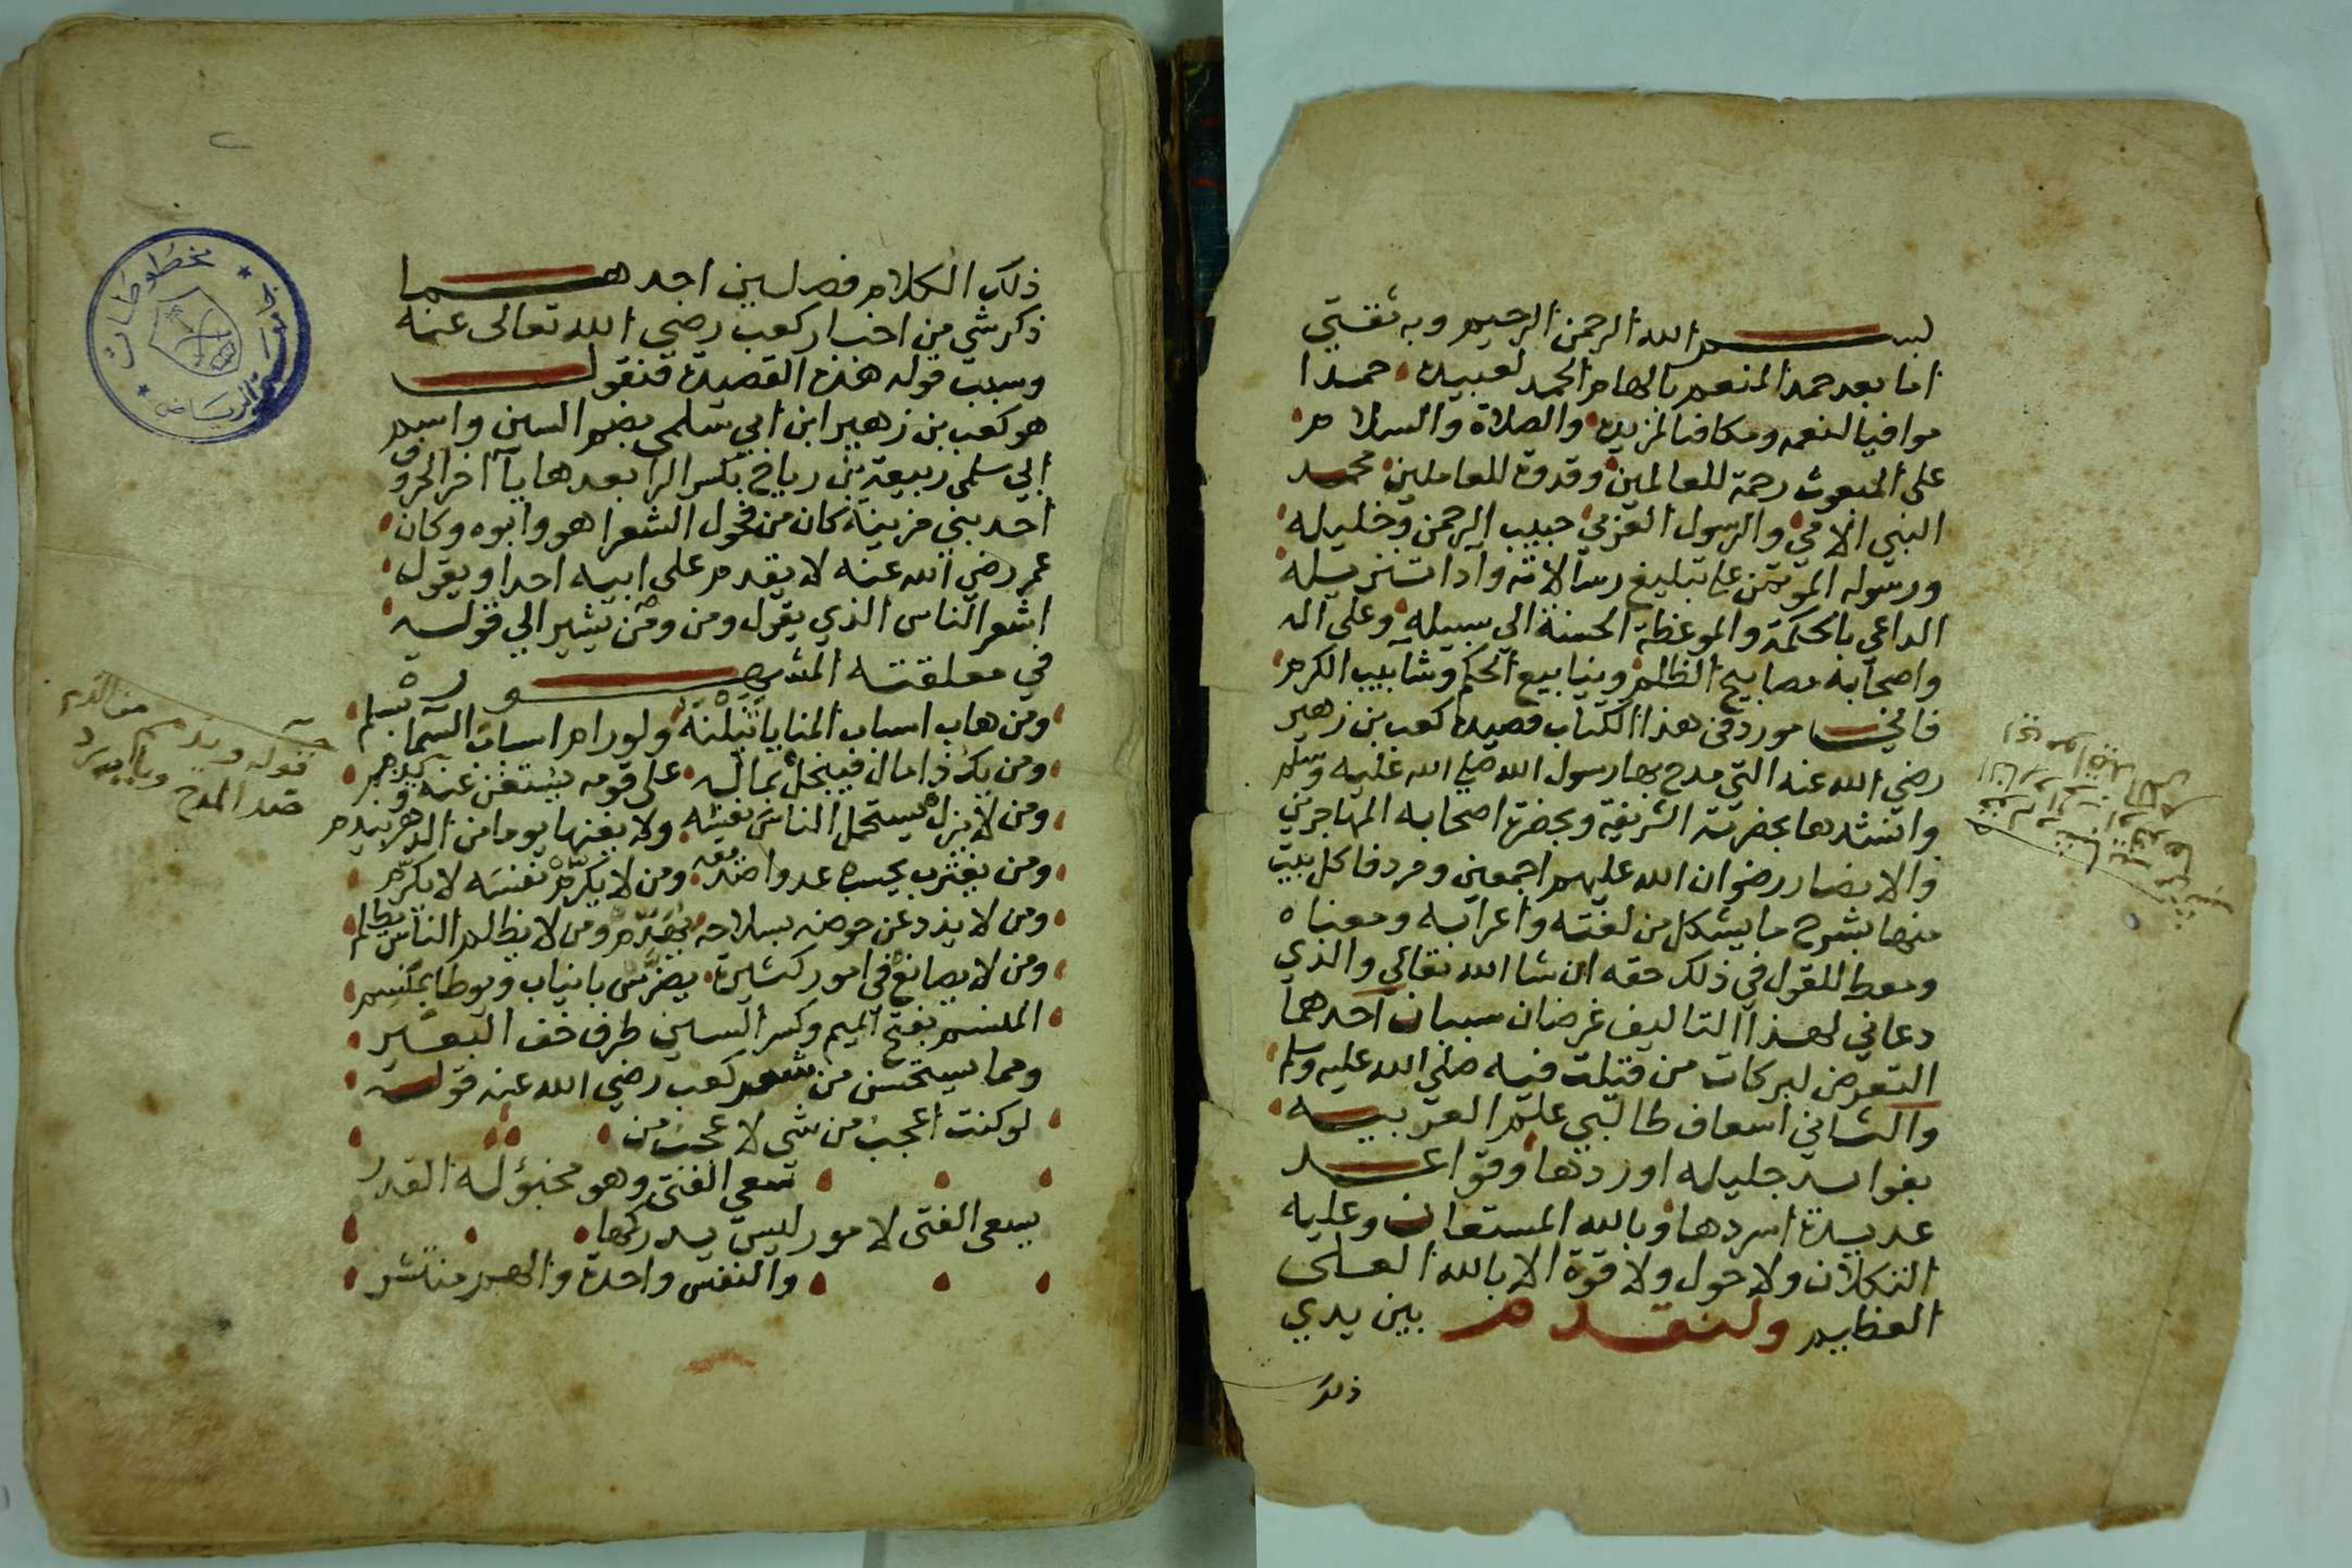 بسم الله الرحمن الرحيم وبه ثقتي
اما بعد حمد المنعم بالهام الحمد لعبيده حمدا
موافيا لنعمه ومكافيا لمزيده والصلاة والسلام
على المبعوث رحمة للعالمين وقدوة للعاملين محمد
النبي الامي والرسول العربي حبيب الرحمن وخليله
ورسوله الموتمن على تبليغ رسالاته وادا تنزيله
الداعي بالحكمة والموعظة الحسنة الي سبيله وعلى اله
واصحابه مصابيح الظلم وينابيع الحكم وشآبيب الكرم
فاني مورد في هذا الكتاب قصيدة كعب بن زهير
رضي الله عنه التي مدح بها رسول الله صلى الله عليه وسلم
وانشدها بحضرته الشريفة وبحضرة اصحابه المهاجرين
والانصار رضوان الله عليهم اجمعين ومردفا كل بيت
منها بشرح ما يشكل من لغته واعرابه ومعناه
ومعط للقول في ذلك حقه ان شا الله تعالى والذي
دعاني لهذا التاليف غرضان سببان احدهما
التعرض لبركات من قيلت فيه صلى الله عليه وسلم
والثاني اسعاف طالبي علم العربيه
بفوايد جليله اوردها وقواعد
عديدة اسردها وبالله المستعان وعليه
التكلان ولا حول ولا قوة الا بالله العلى
العظيم ولنقدم بين يدي
ذلك
ذلك الكلام فصلين احدهما
ذكر شي من اخبار كعب رضي الله تعالى عنه
وسبب قوله هذه القصيدة فنقول
هو كعب بن زهير ابن ابي سلمى بضم السين واسم
ابي سلمى ربيعة بن رياح بكسر الرا بعدها يآ اخر الحروف
احد بني مزينة كان من فحول الشعرا هو وابوه وكان
عمر رضي الله عنه لا يقدم على ابيه احدا ويقول
اشعر الناس الذي يقول ومن ومن يشير الي قوله
في معلقته المشهورة
ومن هاب اسباب المنايا تنلنه ولو رام اسباب السما بسلم
ومن يك ذا مال فيبخل بماله على قومه يستغن عنه ويذمم
ومن لا يزل يستحمل الناس نفسه ولا يغنها يوما من الدهر يندم
ومن يغترب يحسب عدوا صديقه ومن لا يكرم نفسه لا يكرم
ومن لا يذد عن حوضه بسلاحه يهدم ومن لا يظلم الناس يظلم
ومن لا يصانع في امور كثيرة يضرس بانياب ويوطا بمنسم
المنسم بفتح الميم وكسر السين طرف خف البعير
ومما يستحسن من شعر كعب رضي الله عنه قوله
لو كنت اعجب من شي لاعجب من
سعي الفتى وهو مخبؤ له القدر
يسعى الفتى لامور ليس يدركها
والنفس واحدة والهم منتشر
قوله ويذمم من الذم
ضد المدح
مخطوطات
الرياض